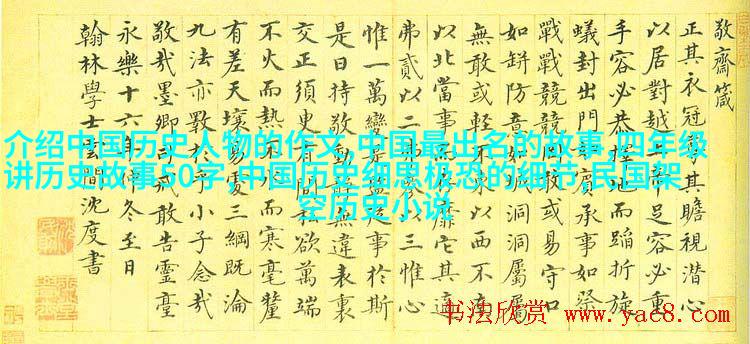 敬齋箴
正其衣冠其瞻視潛心
以居對越足容必重
手容必恭擇地而蹈折旋
蟻封出門賓承事如祭
戰戰兢兢敢或易守口
如缾防意如洞洞屬屬
無敢或輕不東以西不南
以北當事靡它其適
弗貳以二以三惟心
惟一萬變是事於斯
是曰持敬動無違表裏
交正須臾有欲萬端
不火而熱不而寒毫釐
有差天壤易三綱既淪
九法亦斁於乎小子念哉
敬哉墨卿司戒敢告靈臺
永樂十六年冬至日
翰林學士雲間沈度書
介绍中国历史人物的作文,中国最出名的故事,四年级
讲历史故事50字,中国历史细思极恐的细节,民国架
空历史小说
书法欣赏 www.yac8.com